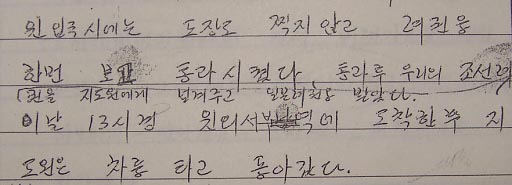 원 입국 시에는 도장도 찍지 않고 여권을
한번 보고 통과시켰다. 통과후 우리의 조선려
(권을 지도원에게 넘겨주고 일본려권을 받았다.
이날 13시경 원의서부역에 도착한후 지
도원은 차를 타고 돌아갔다.